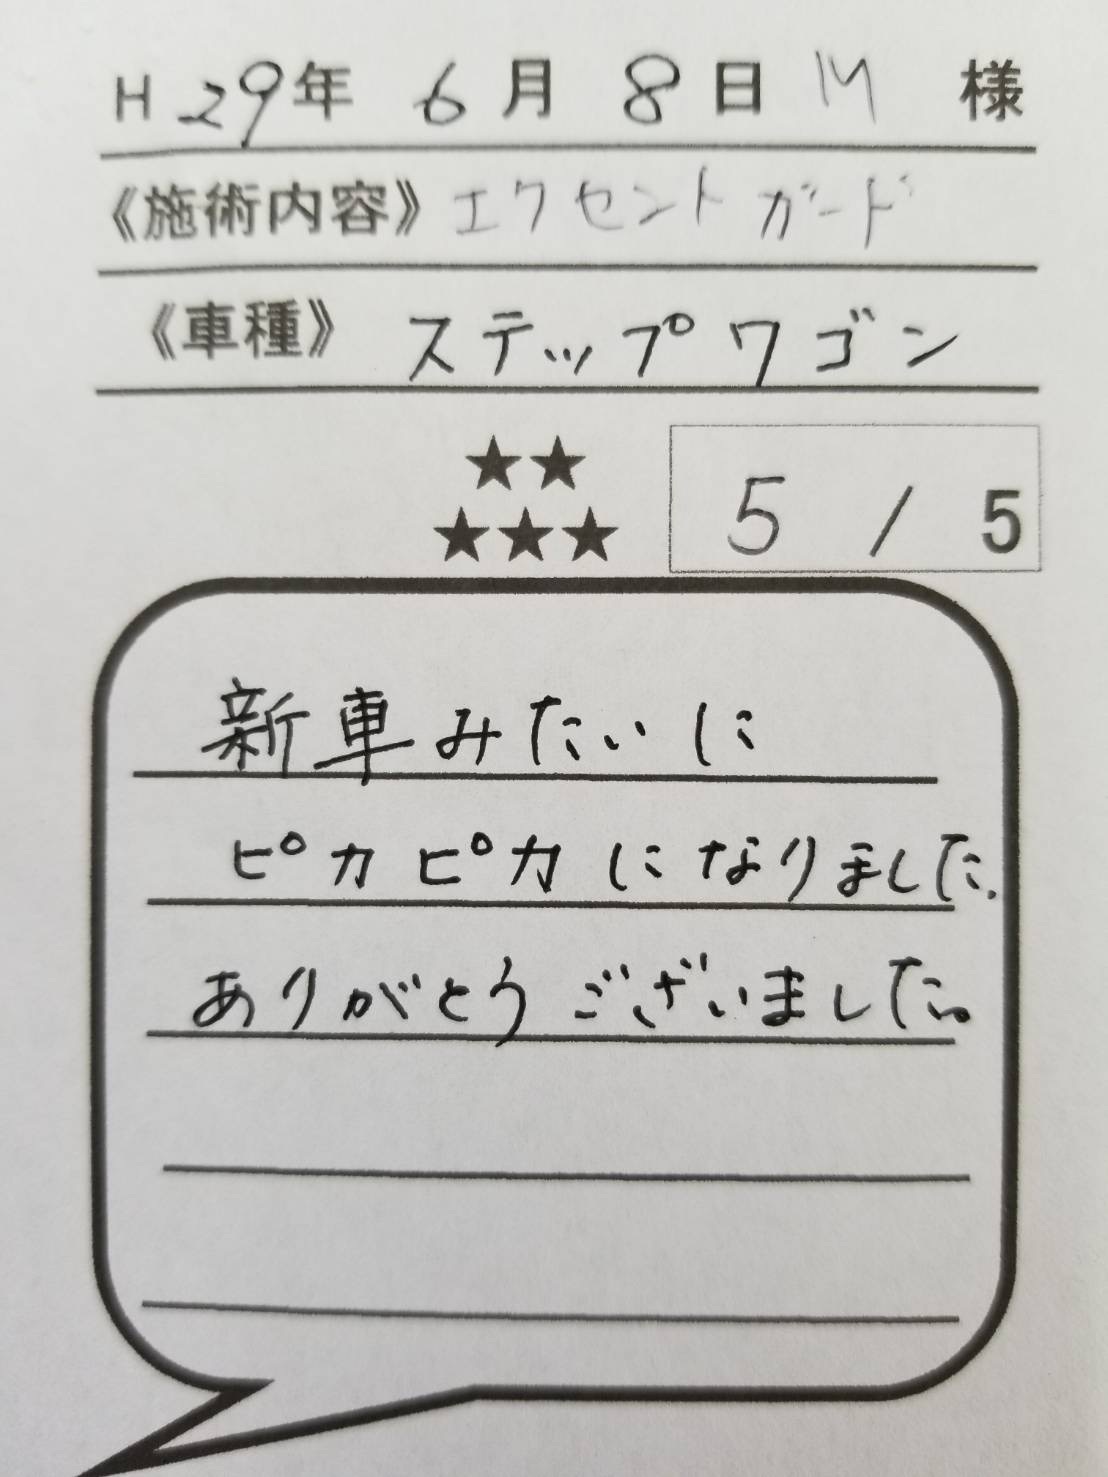 H 29年 6月 8日 M 様
《施術内容》エクセントガード
《車種》ステップワゴン
★★
★★★ 5 / 5
新車みたいに
ピカピカになりました.
ありがとうございました。